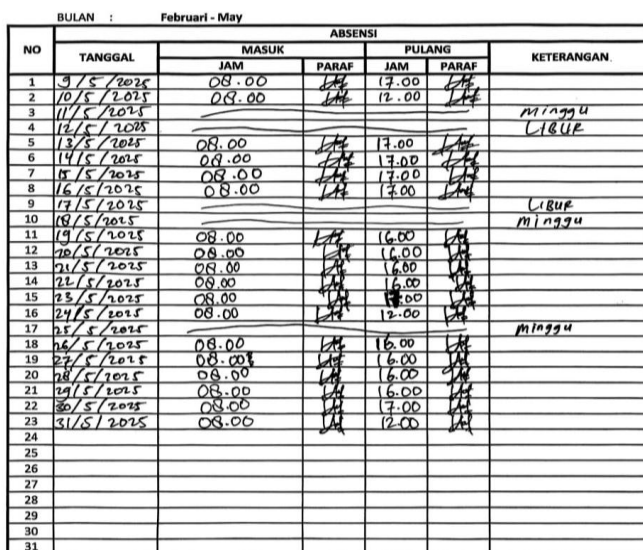 BULAN : Februari - May
ABSENSI
NO TANGGAL MASUK PULANG KETERANGAN
JAM PARAF JAM PARAF
1 9/5/2025 08.00 17.00
2 10/5/2025 08.00 12.00
3 11/5/2025 minggu
4 12/5/2025 LIBUR
5 13/5/2025 08.00 17.00
6 14/5/2025 08.00 17.00
7 15/5/2025 08.00 17.00
8 16/5/2025 08.00 17.00
9 17/5/2025 LIBUR
10 18/5/2025 minggu
11 19/5/2025 08.00 16.00
12 20/5/2025 08.00 16.00
13 21/5/2025 08.00 16.00
14 22/5/2025 08.00 16.00
15 23/5/2025 08.00
16 24/5/2025 08.00 12.00
17 25/5/2025 minggu
18 26/5/2025 08.00 16.00
19 27/5/2025 08.00 16.00
20 28/5/2025 08.00 16.00
21 29/5/2025 08.00 16.00
22 30/5/2025 08.00 17.00
23 31/5/2025 08.00 12.00
24
25
26
27
28
29
30
31